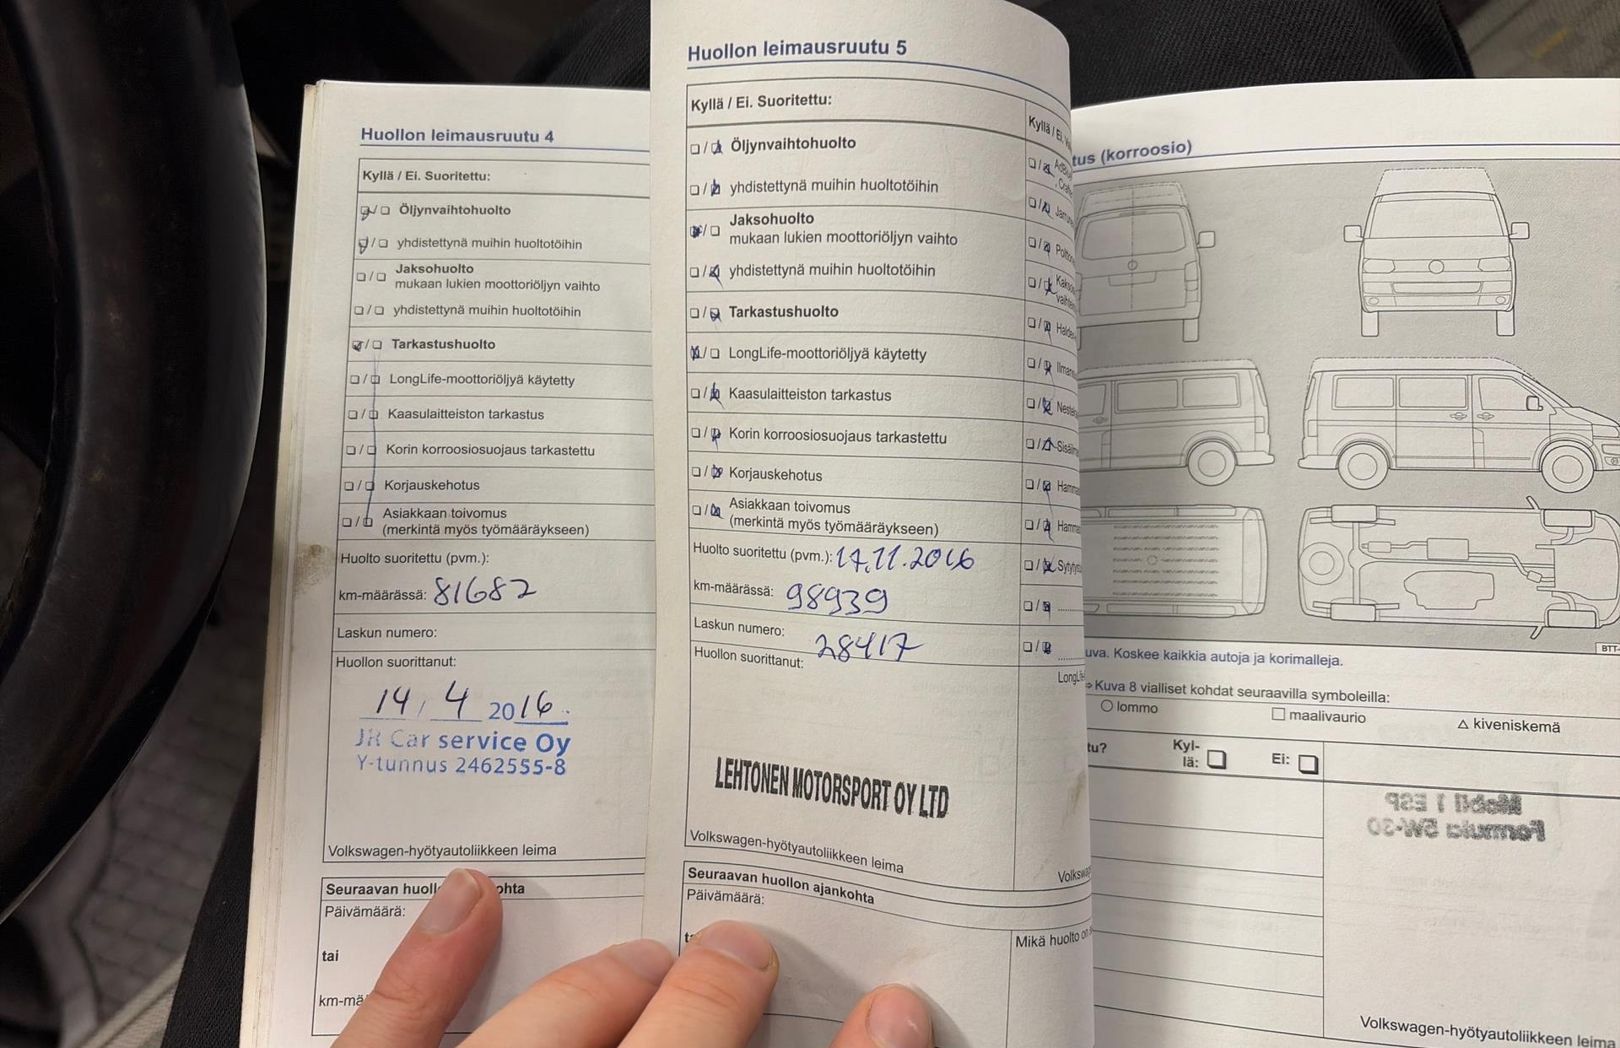 Huollon leimausruutu 4
Kyllä / Ei. Suoritettu:
Öljynvaihtohuolto
yhdistettynä muihin huoltotöihin
Jaksohuolto
mukaan lukien moottoriöljyn vaihto
yhdistettynä muihin huoltotöihin
Tarkastushuolto
LongLife-moottoriöljyä käytetty
Kaasulaitteiston tarkastus
Korin korroosiosuojaus tarkastettu
Korjauskehotus
Asiakkaan toivomus
(merkintä myös työmääräykseen)
Huolto suoritettu (pvm.):
km-määrässä: 81682
Laskun numero:
Huollon suorittanut:
14 / 4 2016.
JR Car service Oy
Y-tunnus 2462555-8
Volkswagen-hyötyautoliikkeen leima
Seuraavan huoll ohta
Päivämäärä:
tai
km-mä
Huollon leimausruutu 5
Kyllä / Ei. Suoritettu:
Öljynvaihtohuolto
yhdistettynä muihin huoltotöihin
Jaksohuolto
mukaan lukien moottoriöljyn vaihto
yhdistettynä muihin huoltotöihin
Tarkastushuolto
LongLife-moottoriöljyä käytetty
Kaasulaitteiston tarkastus
Korin korroosiosuojaus tarkastettu
Korjauskehotus
Asiakkaan toivomus
(merkintä myös työmääräykseen)
Huolto suoritettu (pvm.): 17.11.2016
km-määrässä: 98939
Laskun numero: 28417
Huollon suorittanut:
LEHTONEN MOTORSPORT OY LTD
Volkswagen-hyötyautoliikkeen leima
Seuraavan huollon ajankohta
Päivämäärä:
Kyllä / Ei.
Mikä huolto on
tus (korroosio)
BTT-
uva. Koskee kaikkia autoja ja korimalleja.
⇒ Kuva 8 vialliset kohdat seuraavilla symboleilla:
○ lommo
□ maalivaurio
△ kiveniskemä
tu?
Kyl-
lä:
Ei:
Mobil 1 ESP
Formula 5W-30
Volkswagen-hyötyautoliikkeen leima